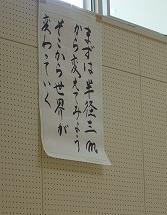 まずは半径三m
から変えてみよう
そこから世界が
変わっていく